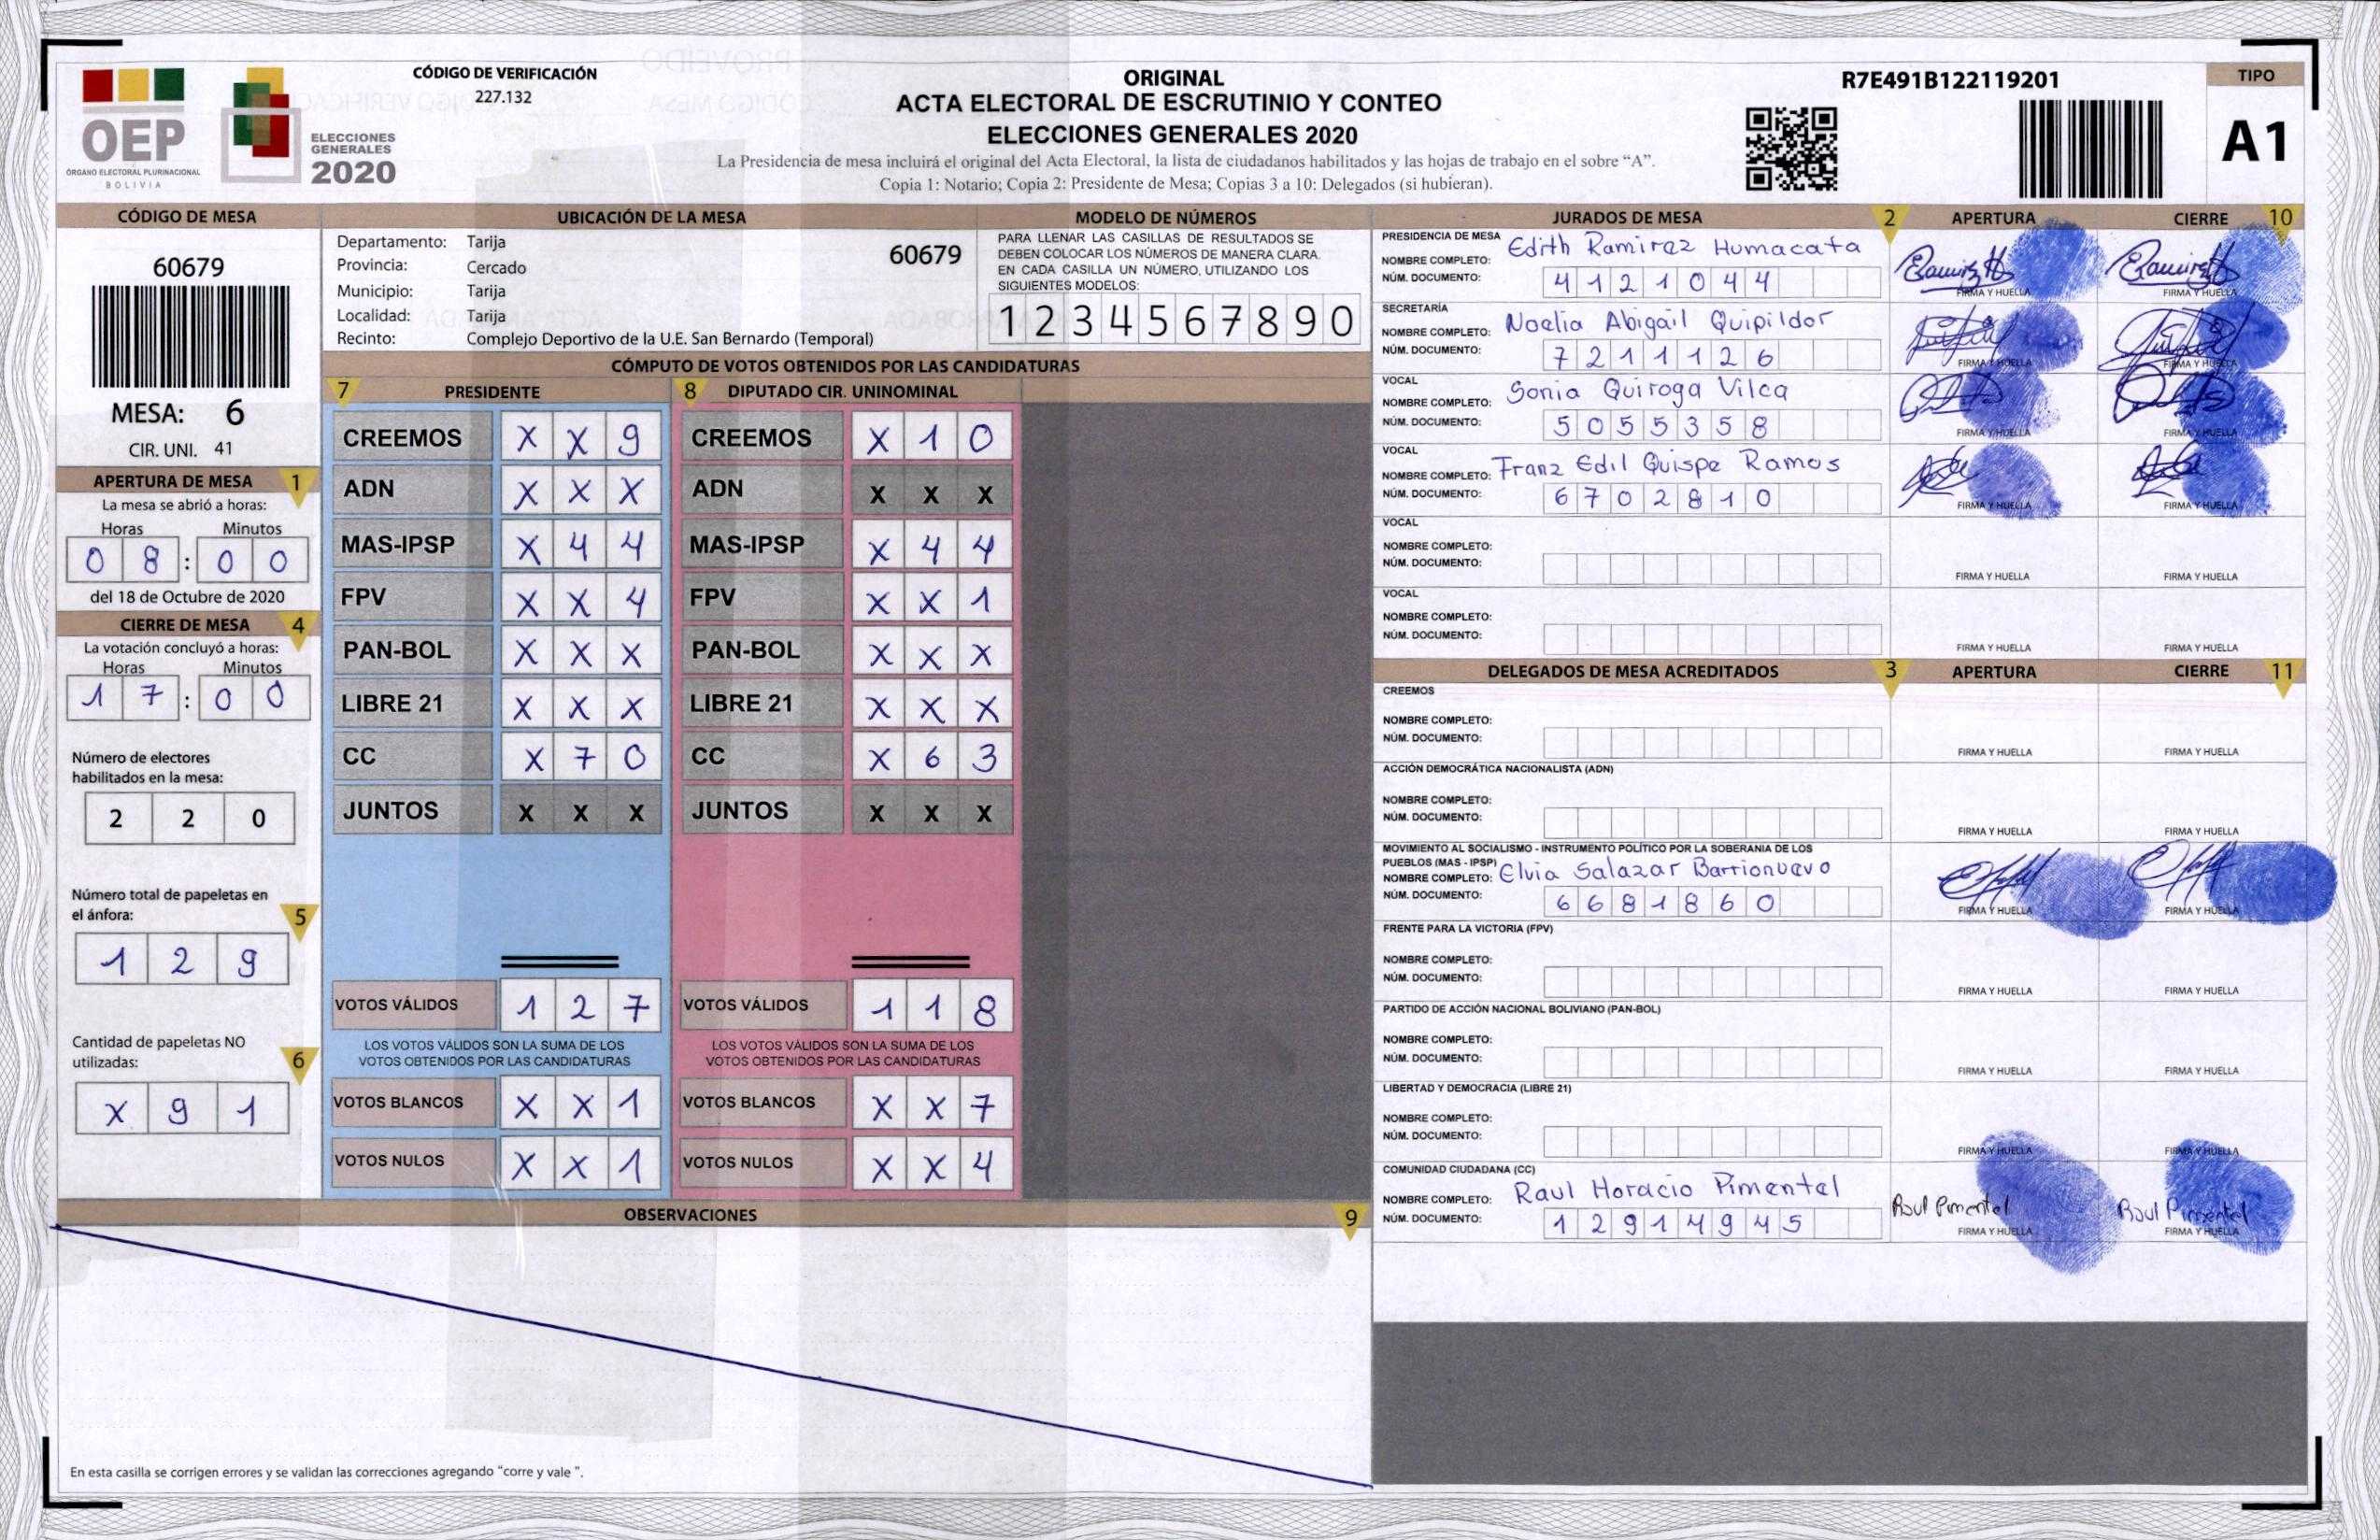 CÓDIGO DE VERIFICACIÓN
227.132
OEP
ÓRGANO ELECTORAL PLURINACIONAL
BOLIVIA
ELECCIONES
GENERALES
2020
ORIGINAL
ACTA ELECTORAL DE ESCRUTINIO Y CONTEO
ELECCIONES GENERALES 2020
La Presidencia de mesa incluirá el original del Acta Electoral, la lista de ciudadanos habilitados y las hojas de trabajo en el sobre “A”.
Copia 1: Notario; Copia 2: Presidente de Mesa; Copias 3 a 10: Delegados (si hubieran).
R7E491B122119201
TIPO
A1
CÓDIGO DE MESA
60679
MESA: 6
CIR. UNI. 41
APERTURA DE MESA 1
La mesa se abrió a horas:
Horas Minutos
0 8 : 0 0
del 18 de Octubre de 2020
CIERRE DE MESA 4
La votación concluyó a horas:
Horas Minutos
1 7 : 0 0
Número de electores
habilitados en la mesa:
2 2 0
Número total de papeletas en
el ánfora: 5
1 2 9
Cantidad de papeletas NO
utilizadas: 6
X 9 1
UBICACIÓN DE LA MESA
Departamento: Tarija
60679
Provincia: Cercado
Municipio: Tarija
Localidad: Tarija
Recinto: Complejo Deportivo de la U.E. San Bernardo (Temporal)
MODELO DE NÚMEROS
PARA LLENAR LAS CASILLAS DE RESULTADOS SE
DEBEN COLOCAR LOS NÚMEROS DE MANERA CLARA.
EN CADA CASILLA UN NÚMERO, UTILIZANDO LOS
SIGUIENTES MODELOS:
1 2 3 4 5 6 7 8 9 0
CÓMPUTO DE VOTOS OBTENIDOS POR LAS CANDIDATURAS
7 PRESIDENTE
CREEMOS X X 9
ADN X X X
MAS-IPSP X 4 4
FPV X X 4
PAN-BOL X X X
LIBRE 21 X X X
CC X 7 0
JUNTOS X X X
VOTOS VÁLIDOS 1 2 7
LOS VOTOS VÁLIDOS SON LA SUMA DE LOS
VOTOS OBTENIDOS POR LAS CANDIDATURAS
VOTOS BLANCOS X X 1
VOTOS NULOS X X 1
8 DIPUTADO CIR. UNINOMINAL
CREEMOS X 1 0
ADN X X X
MAS-IPSP X 4 4
FPV X X 1
PAN-BOL X X X
LIBRE 21 X X X
CC X 6 3
JUNTOS X X X
VOTOS VÁLIDOS 1 1 8
LOS VOTOS VÁLIDOS SON LA SUMA DE LOS
VOTOS OBTENIDOS POR LAS CANDIDATURAS
VOTOS BLANCOS X X 7
VOTOS NULOS X X 4
OBSERVACIONES 9
En esta casilla se corrigen errores y se validan las correcciones agregando “corre y vale ”.
JURADOS DE MESA 2 APERTURA CIERRE 10
PRESIDENCIA DE MESA
NOMBRE COMPLETO: Edith Ramirez Humacata
NÚM. DOCUMENTO: 4 1 2 1 0 4 4
FIRMA Y HUELLA FIRMA Y HUELLA
SECRETARÍA
NOMBRE COMPLETO: Noelia Abigail Quipildor
NÚM. DOCUMENTO: 7 2 1 1 1 2 6
FIRMA Y HUELLA FIRMA Y HUELLA
VOCAL
NOMBRE COMPLETO: Sonia Quiroga Vilca
NÚM. DOCUMENTO: 5 0 5 5 3 5 8
FIRMA Y HUELLA FIRMA Y HUELLA
VOCAL
NOMBRE COMPLETO: Franz Edil Quispe Ramos
NÚM. DOCUMENTO: 6 7 0 2 8 1 0
FIRMA Y HUELLA FIRMA Y HUELLA
VOCAL
NOMBRE COMPLETO:
NÚM. DOCUMENTO:
FIRMA Y HUELLA FIRMA Y HUELLA
VOCAL
NOMBRE COMPLETO:
NÚM. DOCUMENTO:
FIRMA Y HUELLA FIRMA Y HUELLA
DELEGADOS DE MESA ACREDITADOS 3 APERTURA CIERRE 11
CREEMOS
NOMBRE COMPLETO:
NÚM. DOCUMENTO:
FIRMA Y HUELLA FIRMA Y HUELLA
ACCIÓN DEMOCRÁTICA NACIONALISTA (ADN)
NOMBRE COMPLETO:
NÚM. DOCUMENTO:
FIRMA Y HUELLA FIRMA Y HUELLA
MOVIMIENTO AL SOCIALISMO - INSTRUMENTO POLÍTICO POR LA SOBERANIA DE LOS
PUEBLOS (MAS - IPSP)
NOMBRE COMPLETO: Elvia Salazar Barrionuevo
NÚM. DOCUMENTO: 6 6 8 1 8 6 0
FIRMA Y HUELLA FIRMA Y HUELLA
FRENTE PARA LA VICTORIA (FPV)
NOMBRE COMPLETO:
NÚM. DOCUMENTO:
FIRMA Y HUELLA FIRMA Y HUELLA
PARTIDO DE ACCIÓN NACIONAL BOLIVIANO (PAN-BOL)
NOMBRE COMPLETO:
NÚM. DOCUMENTO:
FIRMA Y HUELLA FIRMA Y HUELLA
LIBERTAD Y DEMOCRACIA (LIBRE 21)
NOMBRE COMPLETO:
NÚM. DOCUMENTO:
FIRMA Y HUELLA FIRMA Y HUELLA
COMUNIDAD CIUDADANA (CC)
NOMBRE COMPLETO: Raul Horacio Pimentel
NÚM. DOCUMENTO: 1 2 9 1 4 9 4 5
Raul Pimentel Raul Pimentel
FIRMA Y HUELLA FIRMA Y HUELLA